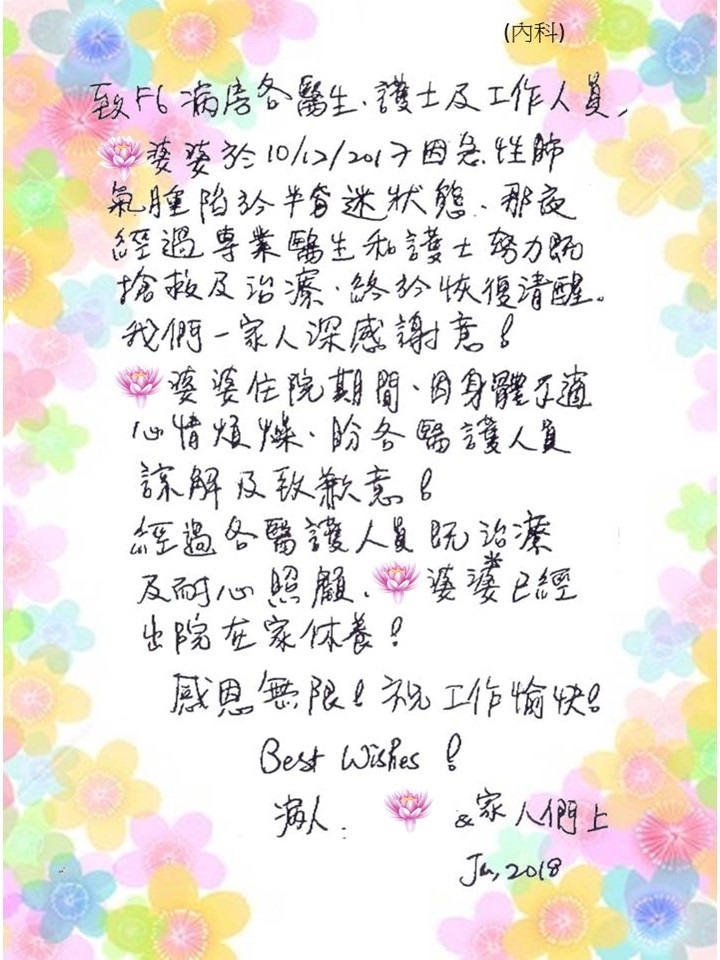 (內科)
致F6病房各醫生、護士及工作人員,
婆婆於10/12/2017因急性肺
氣腫陷於半昏迷狀態、那夜
經過專業醫生和護士努力既
搶救及治療、終於恢復清醒。
我們一家人深感謝意!
婆婆住院期間、因身體不適
心情煩燥、盼各醫護人員
諒解及致歉意!
經過各醫護人員既治療
及耐心照顧、婆婆已經
出院在家休養!
感恩無限!祝工作愉快!
Best Wishes!
病人: & 家人們上
Jan, 2018